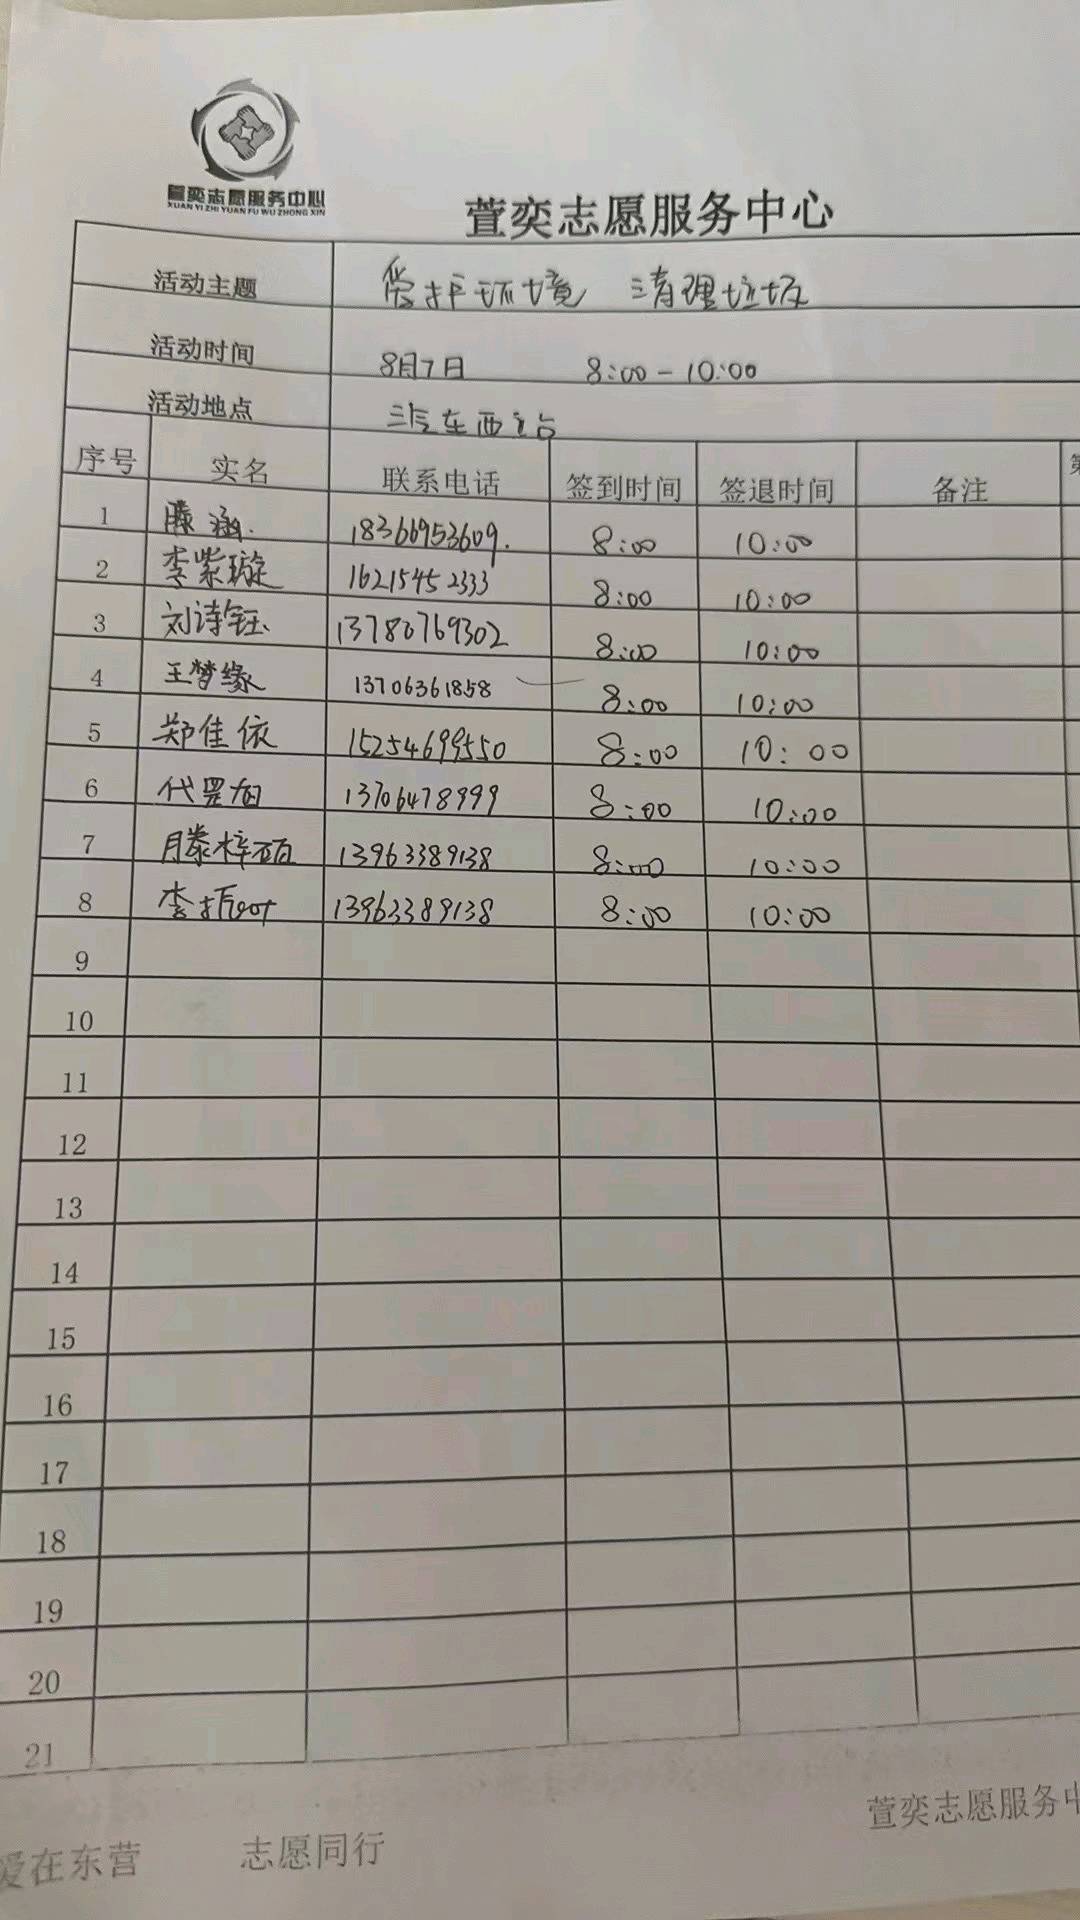 萱奕志愿服务中心
XUAN YI ZHI YUAN FU WU ZHONG XIN
萱奕志愿服务中心
活动主题 爱护环境 清理垃圾
活动时间 8月7日 8:00-10:00
活动地点 汽车西站
序号 实名 联系电话 签到时间 签退时间 备注
1 滕涵 18366953609. 8:00 10:00
2 李紫璇 16215452333 8:00 10:00
3 刘诗钰 13780769302 8:00 10:00
4 王梦缘 13706361858 8:00 10:00
5 郑佳依 15254699550 8:00 10:00
6 代罡旭 13706478999 8:00 10:00
7 滕梓硕 13963389138 8:00 10:00
8 李 13963389138 8:00 10:00
9
10
11
12
13
14
15
16
17
18
19
20
21
萱奕志愿服务中
爱在东营 志愿同行